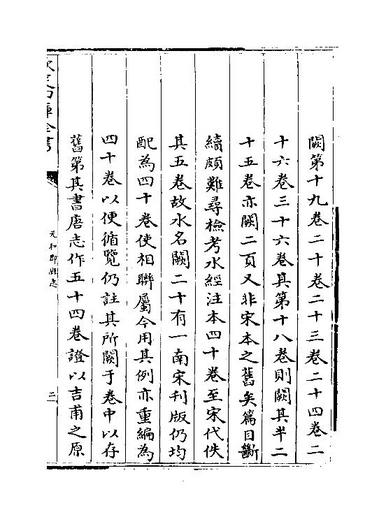 闕第十九卷二十卷二十三卷二十四卷二
十六卷三十六卷其第十八卷則闕其半二
十五卷亦闕二頁又非宋本之舊矣篇目斷
續頗難尋檢考水經注本四十卷至宋代佚
其五卷故水名闕二十有一南宋刊版仍均
配為四十卷使相聯屬今用其例亦重編為
四十卷以便循覽仍註其所闕于卷中以存
舊第其書唐志作五十四卷證以吉甫之原
元和郡縣志
二